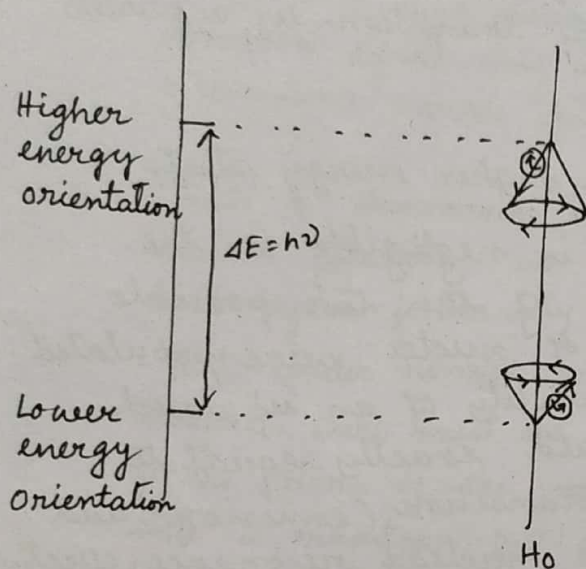 Higher
energy
orientation
ΔE = hν
Lower
energy
orientation
H0